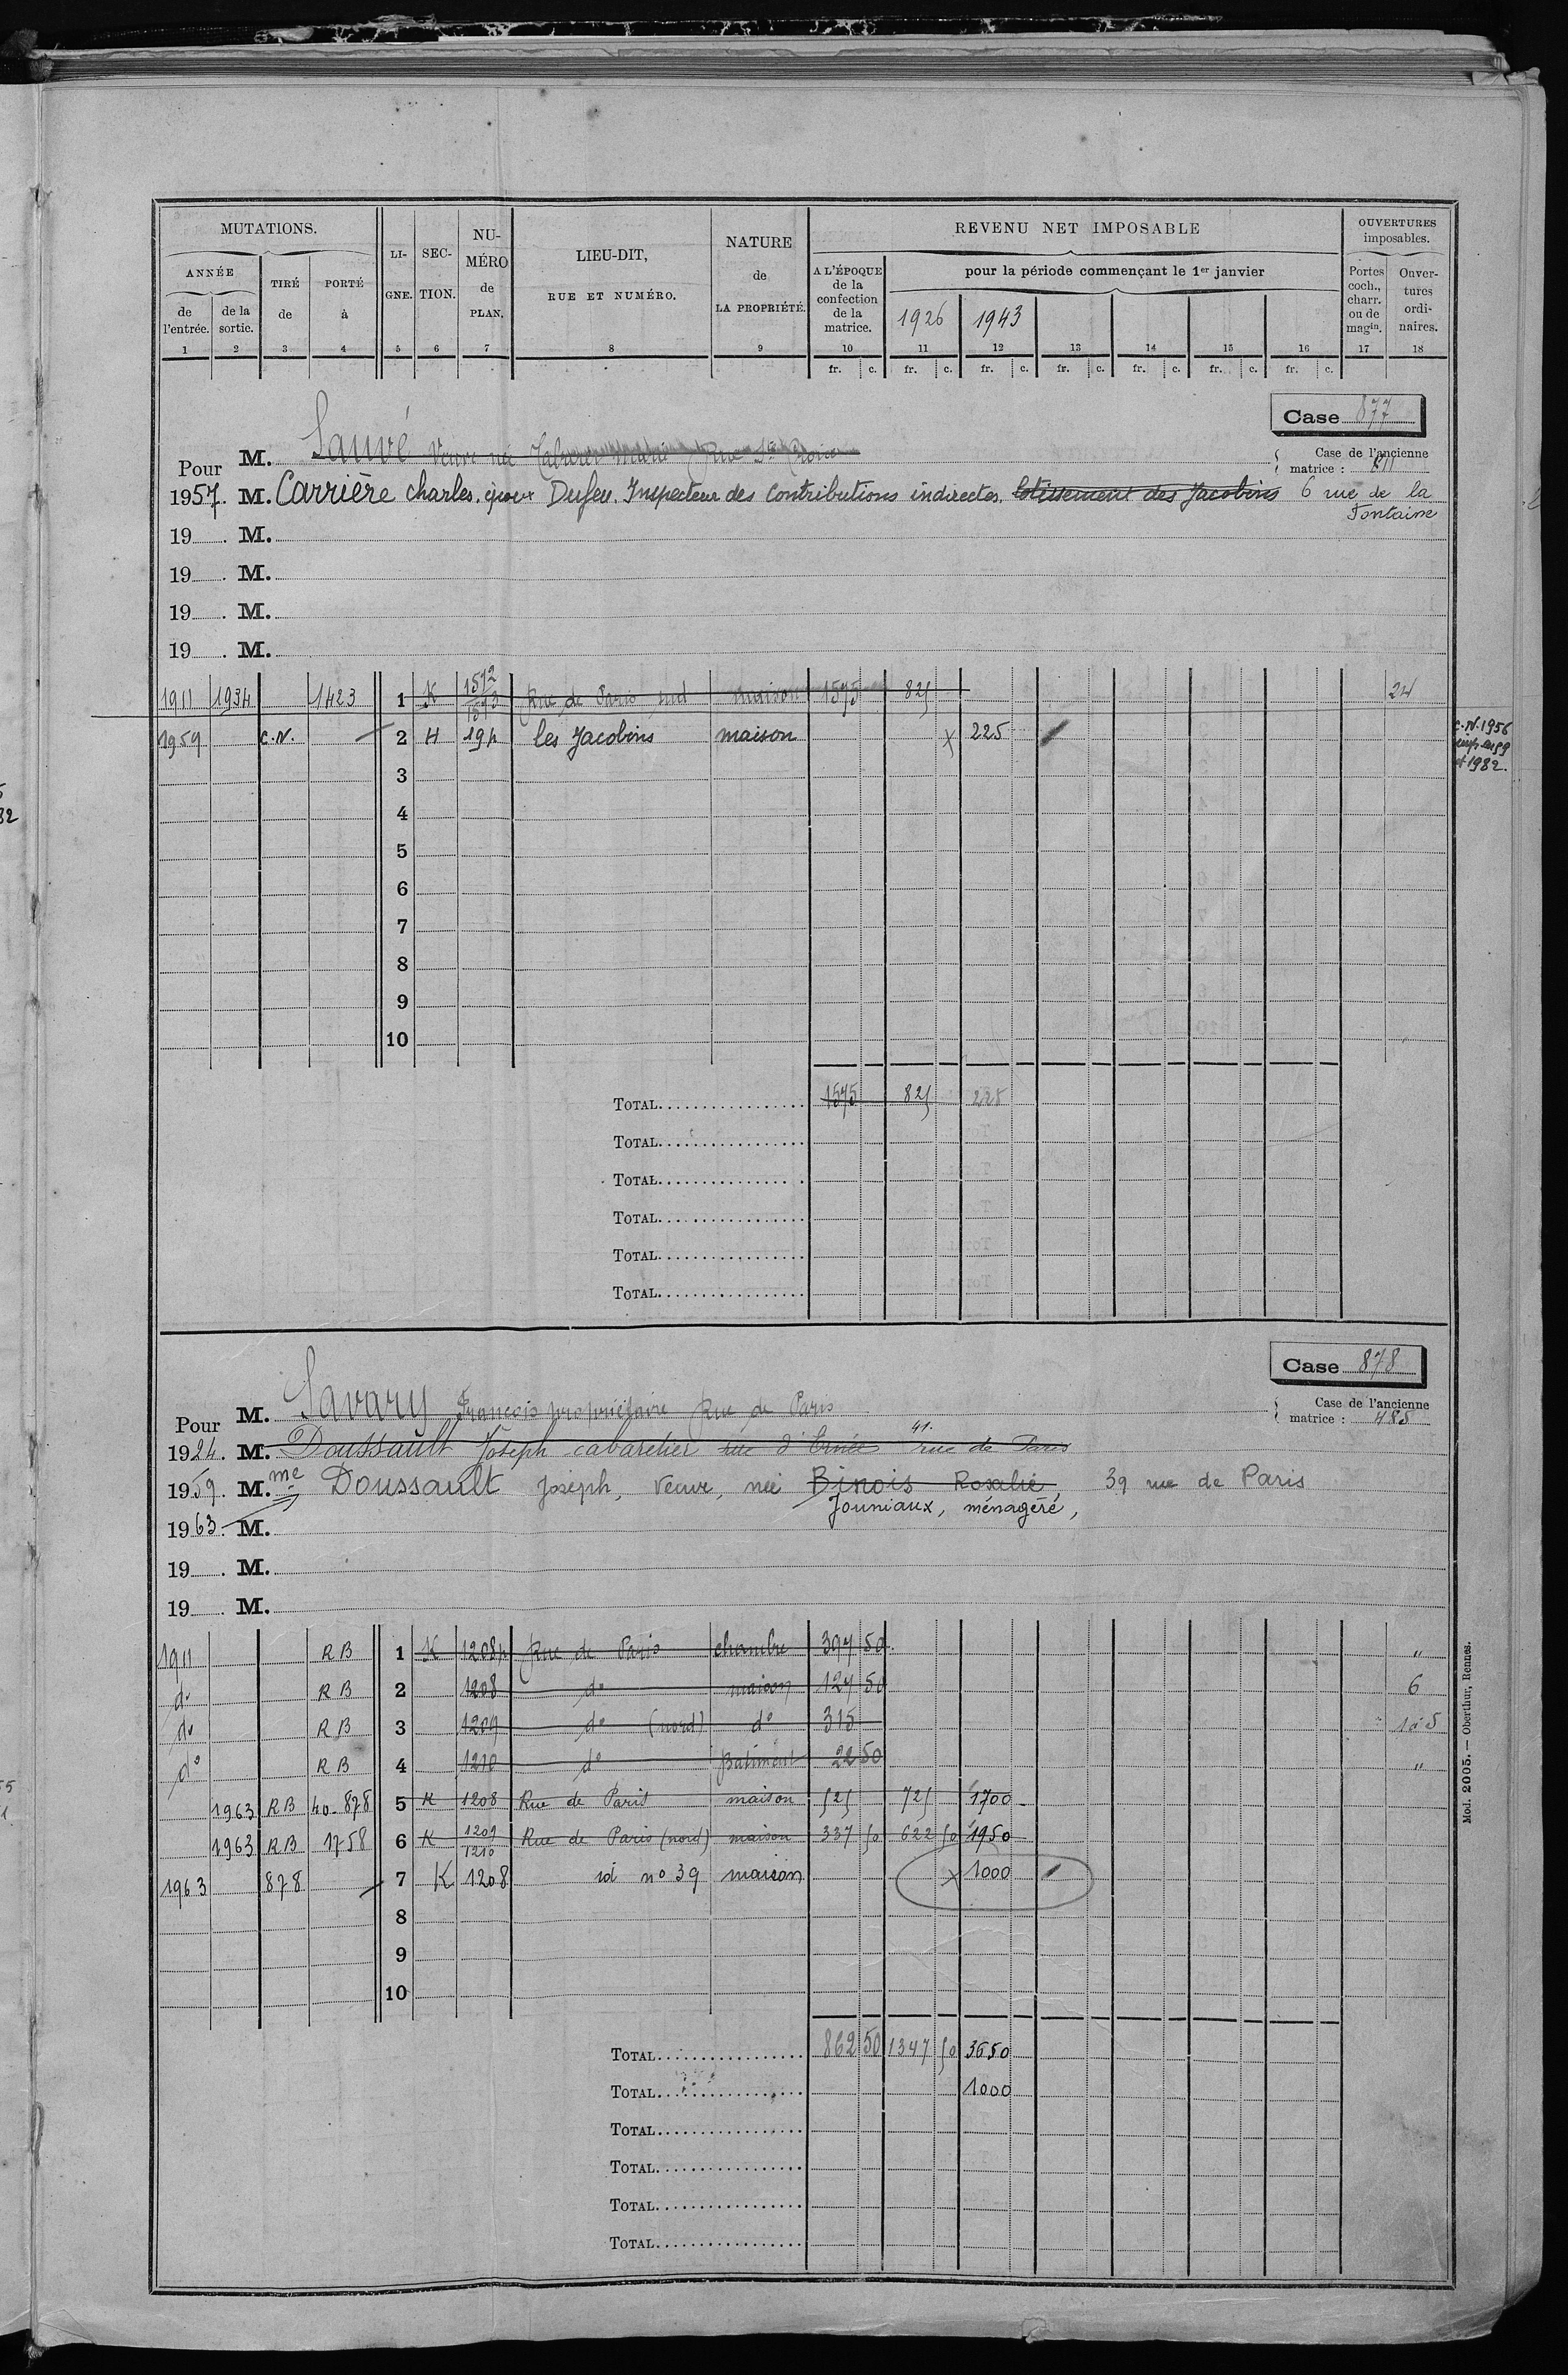 MUTATIONS.
ANNÉE
de l'entrée.
de la sortie.
TIRÉ de
PORTÉ à
LIGNE.
SECTION.
NUMÉRO de PLAN.
LIEU-DIT,
RUE ET NUMÉRO.
NATURE de LA PROPRIÉTÉ.
REVENU NET IMPOSABLE
A L'ÉPOQUE de la confection de la matrice.
pour la période commençant le 1er janvier
1926 1943
OUVERTURES imposables.
Portes coch., charr. ou de magin.
Ouver-tures ordi-naires.
1 2 3 4 5 6 7 8 9 10 11 12 13 14 15 16 17 18
fr. c. fr. c. fr. c. fr. c. fr. c. fr. c. fr. c.
Case 877
Pour M. Sauvé Veuve née Marie Rue Ste Croix
Case de l'ancienne matrice :
1957. M. Carrière Charles, époux Dufeu. Inspecteur des Contributions indirectes. lotissement des Jacobins 6 rue de la
Fontaine
19 . M.
19 . M.
19 . M.
19 . M.
1911 1934 1423 1 K 1572 1573 Rue de Paris sud maison 1575 825 24
1959 C.N. 2 H 194 les Jacobins maison x 225
C.N. 1956
1982.
3
4
5
6
7
8
9
10
TOTAL 1575 825 225
TOTAL
TOTAL
TOTAL
TOTAL
TOTAL
Case 878
Pour M. Savary François propriétaire Rue de Paris
Case de l'ancienne matrice : 485
1924. M. Doussault Joseph cabaretier rue d'Ernée 41. rue de Paris
1959. M.me Doussault Joseph, Veuve, née Binois Rosalie, 39 rue de Paris
Jouniaux, ménagère,
1963. M.
19 . M.
19 . M.
1911 RB 1 K 1208p Rue de Paris chambre 397 50 "
do RB 2 1208 do maison 127 50 6
do RB 3 1209 do (nord) do 315
do RB 4 1210 do Batiment 22 50 "
1963 RB 40-878 5 K 1208 Rue de Paris maison 525 725 1700
1963 RB 1758 6 K 1209 1210 Rue de Paris (nord) maison 337 50 622 50 1950
1963 878 7 K 1208 id no 39 maison x 1000
8
9
10
TOTAL 862 50 1347 50 3650
TOTAL 1000
TOTAL
TOTAL
TOTAL
TOTAL
Mod. 2005. — Oberthur, Rennes.